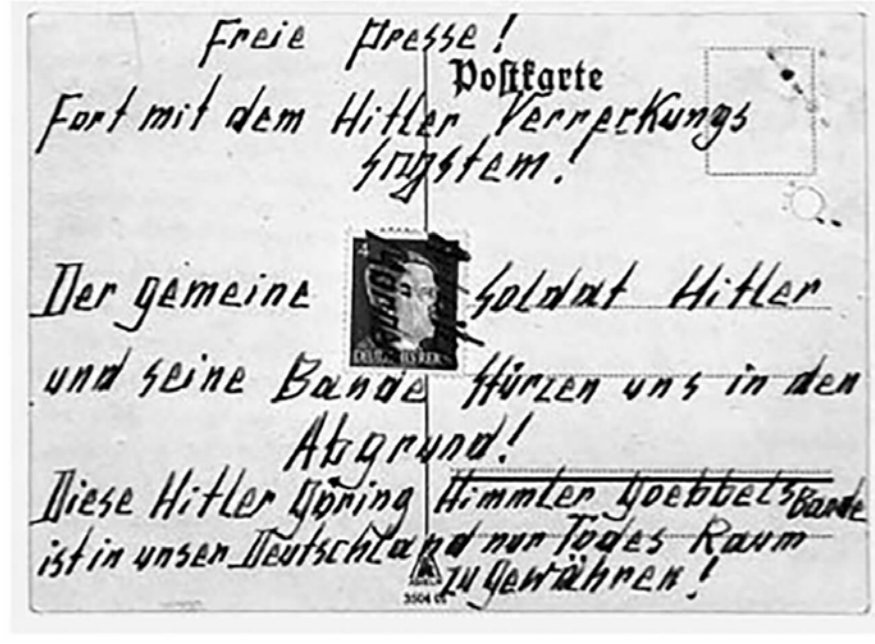 Freie Presse!
Postkarte
Fort mit dem Hitler Verrerkungs
system!
Der gemeine Soldat Hitler
und seine Bande stürzen uns in den
Abgrund!
Diese Hitler Göring Himmler Goebbels Bande
ist in unser Deutschland nur Todes Raum
zu gewähren!